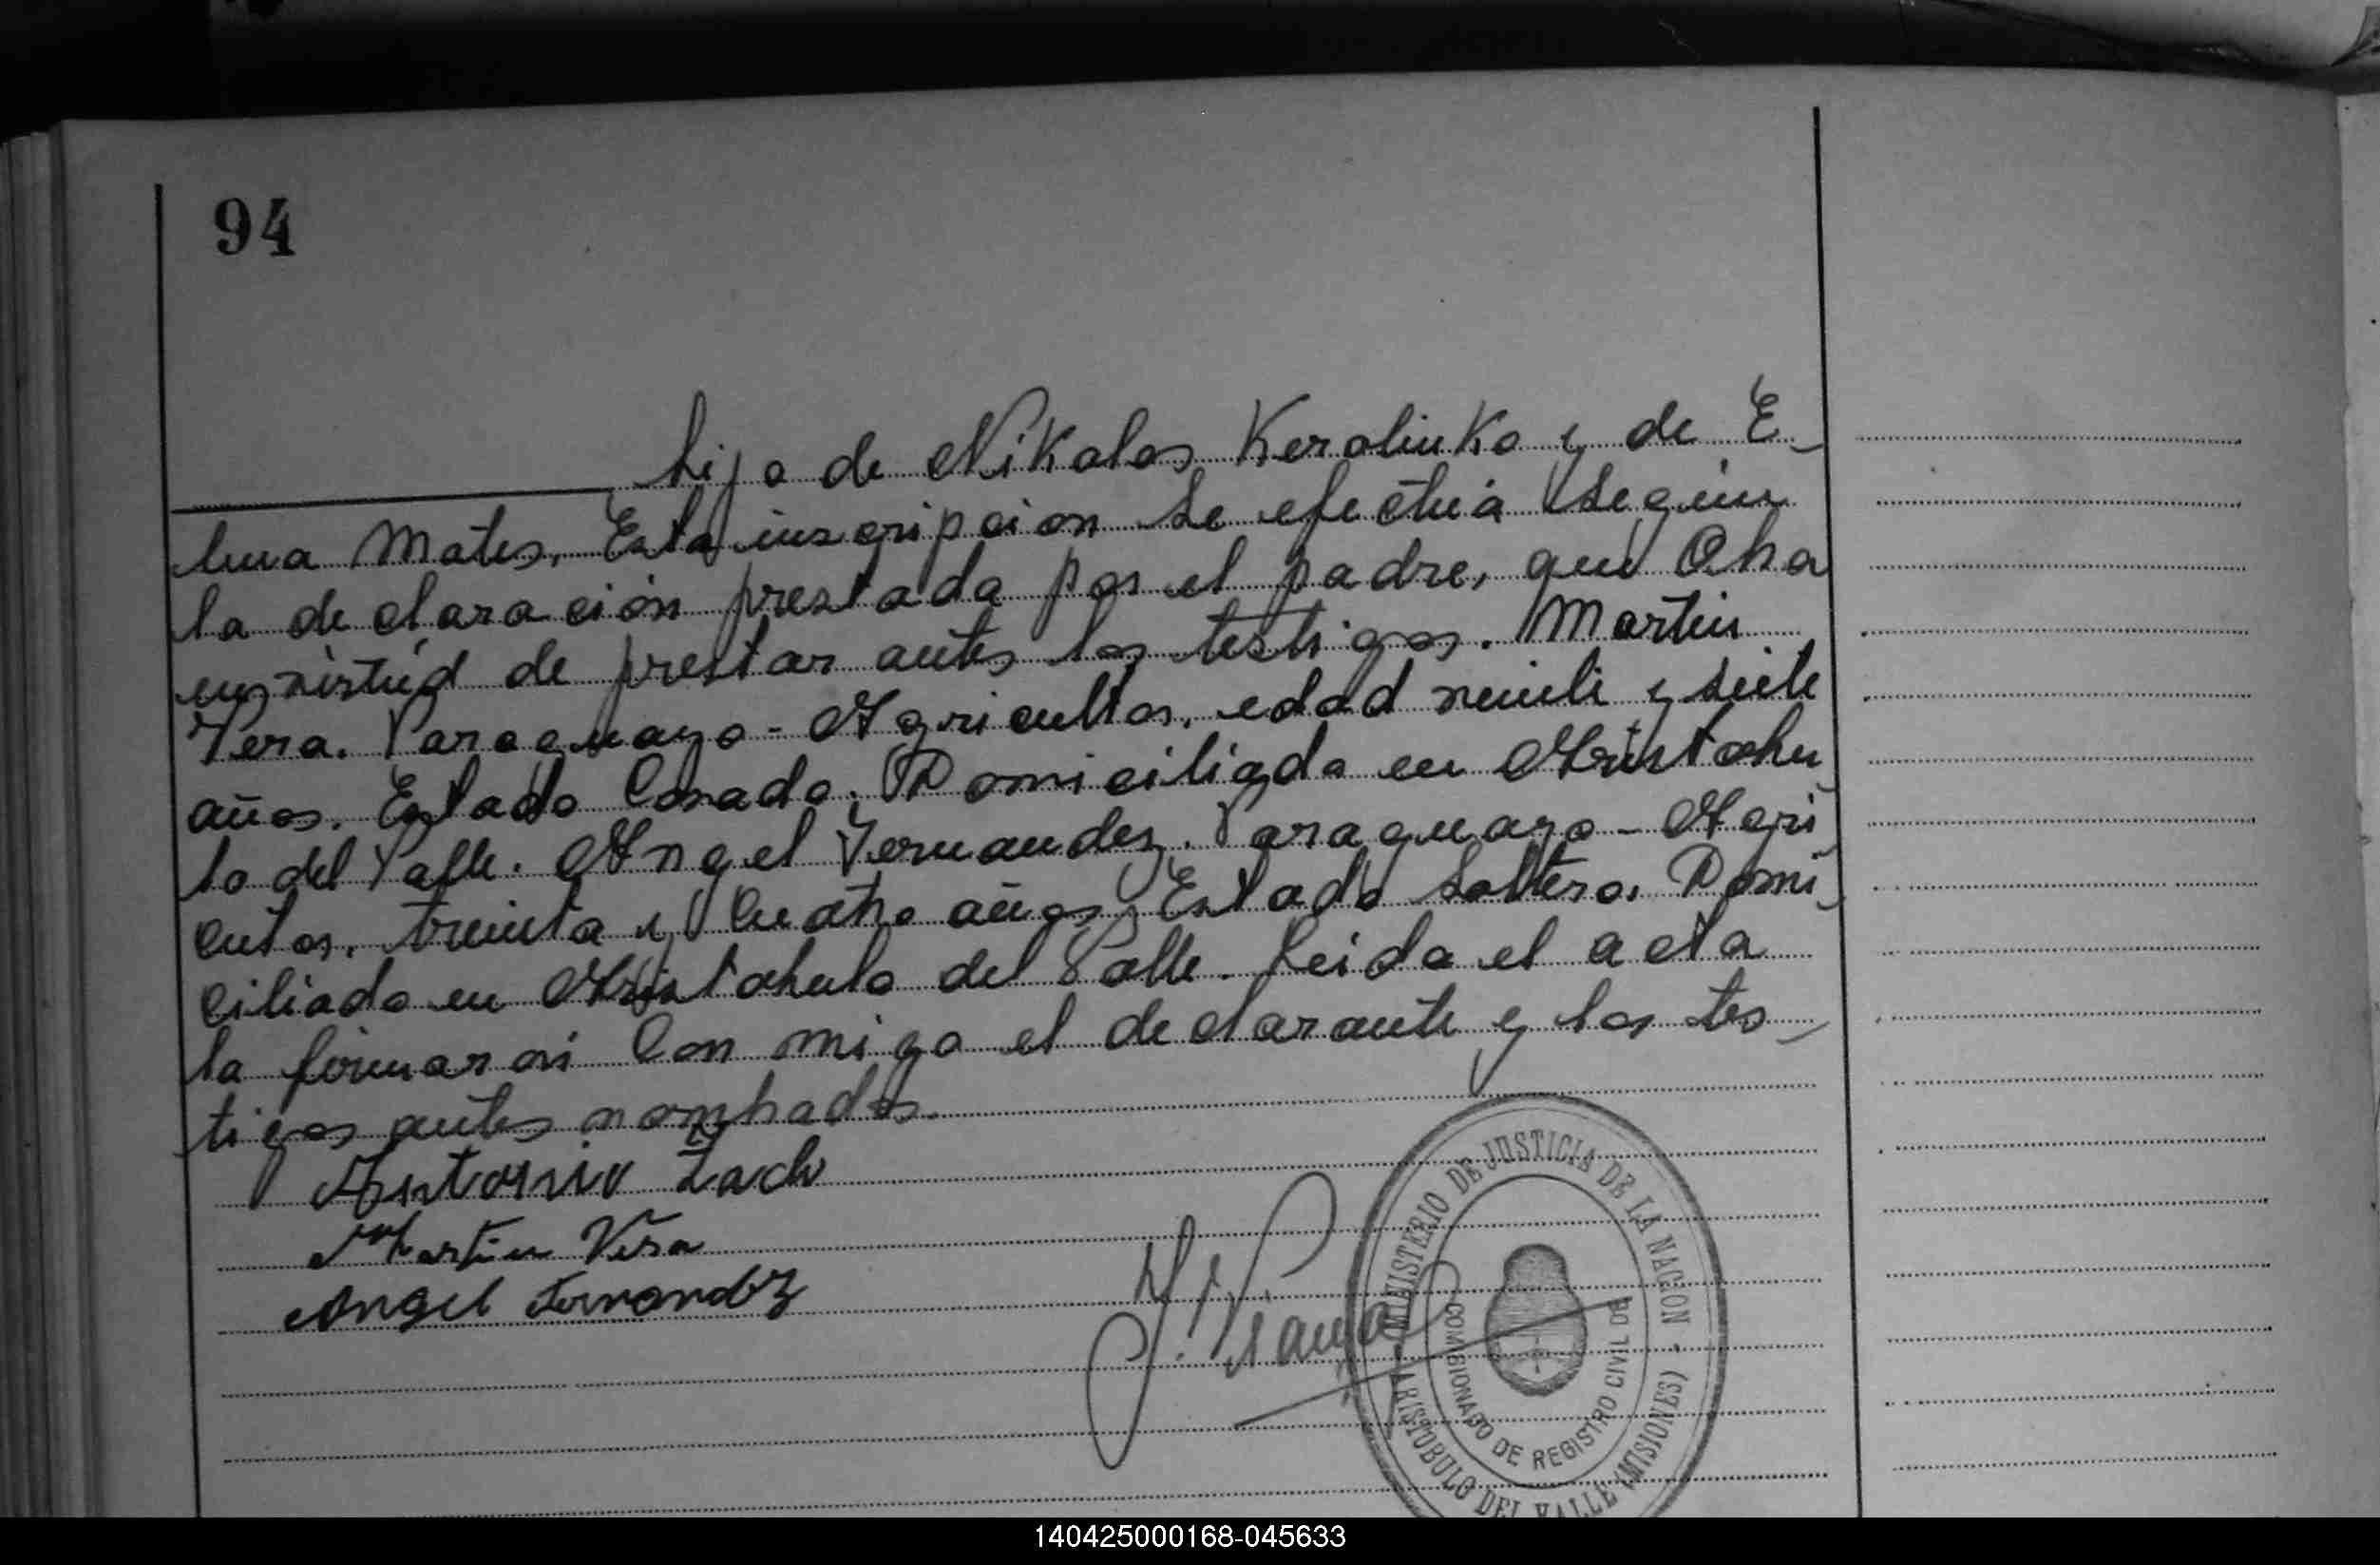 94
hijo de Nikolas Keraliuko y de E-
lma Mates, Esta inscripcion se efectúa según
la declaración prestada por el padre, que Oba
en virtúd de prestar antes los testigos. Martin
Vera. Paraguayo - Agricultor, edad veinti y siete
años. Estado Casado. Domiciliado en Aristobu
lo del Valle. Angel Fernandez. Paraguayo - Agri
cutor, treinta y Cuatro años, Estado Soltero, Domi-
ciliado en Aristobulo del Valle. Leida el acta
la firmaron Con migo el declarante y los tes-
tigos antes nombados.
Antonio Zach
Martin Vera
Angel Fernandez
MINISTERIO DE JUSTICIA DE LA NACION -
COMISIONADO DE REGISTRO CIVIL DE
ARISTOBULO DEL VALLE (MISIONES)
140425000168-045633